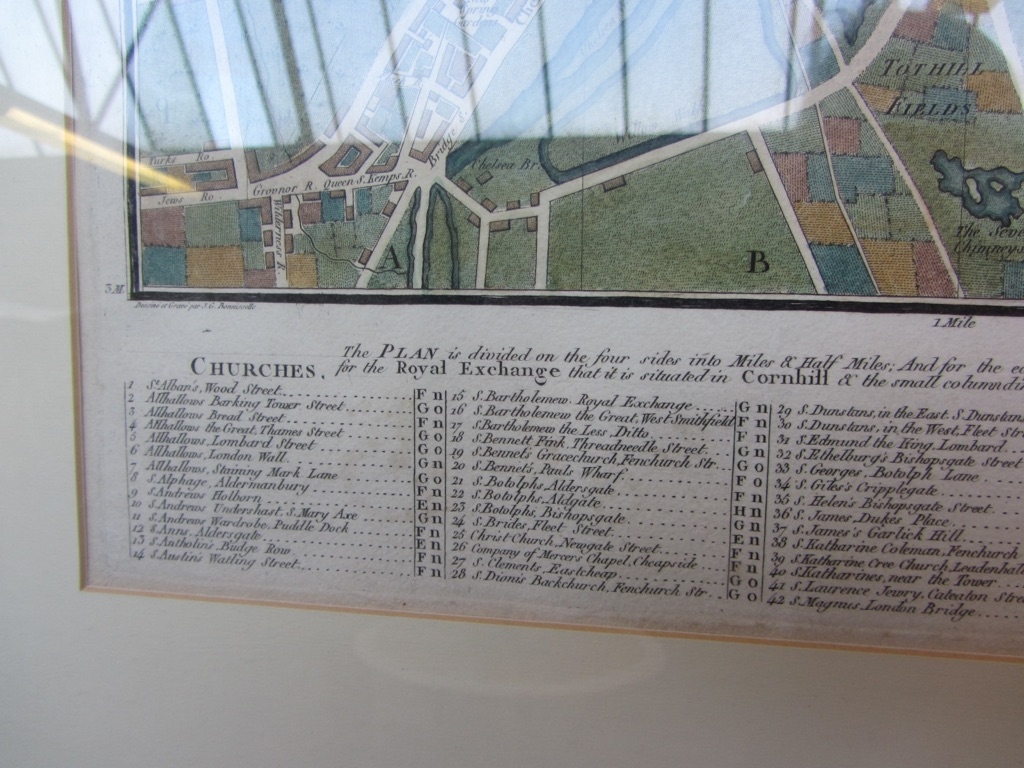 Spring
Garden
TOTHILL
FIELDS
Turks Ro.
Bridge S.
Chelsea Br.
Jews Ro.
Grovnor R.
Queen S.
Kemps R.
Wilderness R.
The Seve
Chimneys
A
B
3 M.
1 Mile
The PLAN is divided on the four sides into Miles & Half Miles; And for the
for the Royal Exchange that it is situated in Cornhill & the small column
CHURCHES.
1 St. Alban's, Wood Street F n
2 Allhallows Barking Tower Street G o
3 Allhallows Bread Street F n
4 Allhallows the Great, Thames Street G o
5 Allhallows, Lombard Street G o
6 Allhallows, London Wall G n
7 Allhallows, Staining Mark Lane G o
8 S. Alphage, Aldermanbury F n
9 S. Andrews Holborn E n
10 S. Andrews Undershast, S. Mary Axe G n
11 S. Andrews Wardrobe, Puddle Dock F n
12 S. Anns, Aldersgate E n
13 S. Antholin's Budge Row F n
14 S. Austin's Watling Street F n
15 S. Bartholemew. Royal Exchange G n
16 S. Bartholemew the Great, West Smithfield F n
17 S. Bartholemew the Less, Ditto F n
18 S. Bennett Fink, Threadneedle Street G n
19 S. Bennet's Gracechurch, Fenchurch Str. G o
20 S. Bennet's, Pauls Wharf F o
21 S. Botolphs, Aldersgate F n
22 S. Botolphs, Aldgate H n
23 S. Botolphs, Bishopsgate G n
24 S. Brides, Fleet Street E n
25 Christ Church, Newgate Street F n
26 Company of Mercers Chapel, Cheapside F n
27 S. Clements, Eastcheap G o
28 S. Dionis Backchurch, Fenchurch Str. G o
29 S. Dunstans, in the East. S. Dunstans
30 S. Dunstans, in the West, Fleet
31 S. Edmund the King, Lombard
32 S. Ethelburg's Bishopsgate Street
33 S. Georges. Botolph Lane
34 S. Giles's Cripplegate
35 S. Helen's Bishopsgate Street
36 S. James, Dukes Place
37 S. James's Garlick Hill
38 S. Katharine Coleman, Fenchurch
39 S. Katharine Cree Church, Leadenhall
40 S. Katharines, near the Tower
41 S. Laurence Jewry, Cateaton
42 S. Magnus, London Bridge